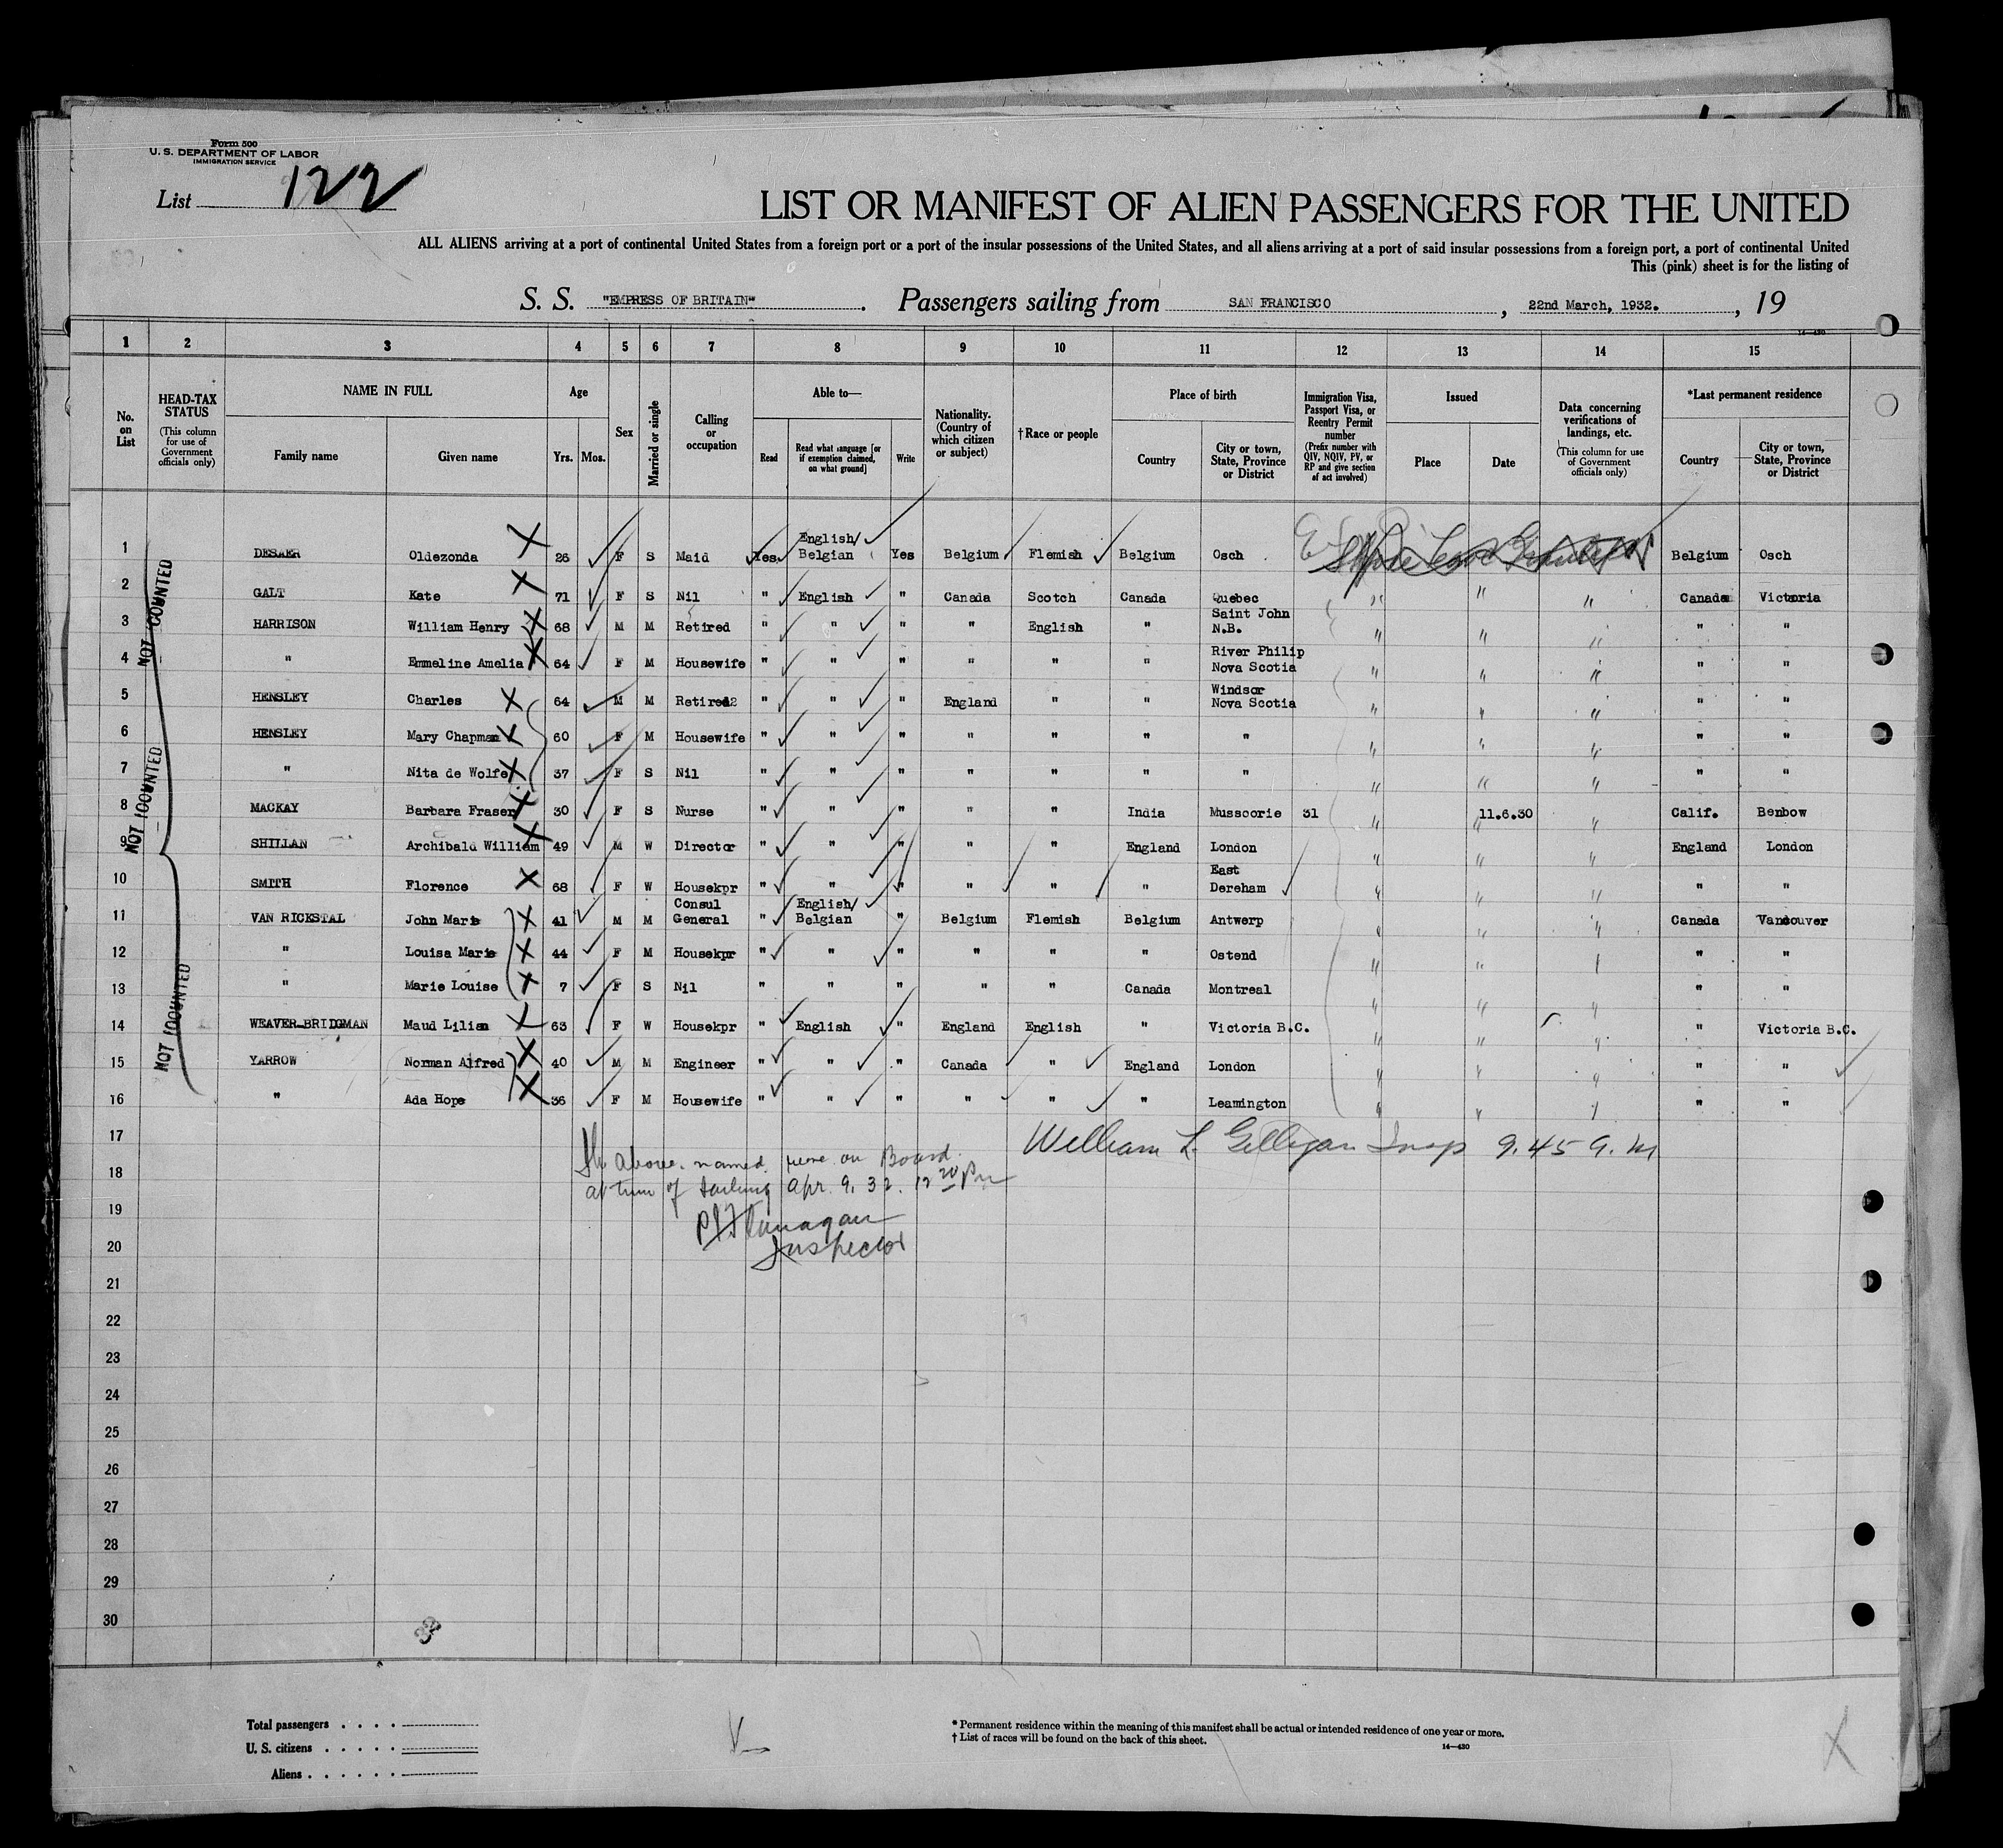 Form 500
U. S. DEPARTMENT OF LABOR
IMMIGRATION SERVICE
List 122
LIST OR MANIFEST OF ALIEN PASSENGERS FOR THE UNITED
ALL ALIENS arriving at a port of continental United States from a foreign port or a port of the insular possessions of the United States, and all aliens arriving at a port of said insular possessions from a foreign port, a port of continental United
This (pink) sheet is for the listing of
S. S. "EMPRESS OF BRITAIN". Passengers sailing from SAN FRANCISCO, 22nd March, 1932., 19
14—430
1 2 3 4 5 6 7 8 9 10 11 12 13 14 15
No. on List
HEAD-TAX STATUS (This column for use of Government officials only)
NAME IN FULL
Family name Given name
Age
Yrs. Mos.
Sex
Married or single
Calling or occupation
Able to—
Read
Read what language [or if exemption claimed, on what ground]
Write
Nationality. (Country of which citizen or subject)
†Race or people
Place of birth
Country
City or town, State, Province or District
Immigration Visa, Passport Visa, or Reentry Permit number (Prefix number with QIV, NQIV, PV, or RP and give section of act involved)
Issued
Place Date
Data concerning verifications of landings, etc. (This column for use of Government officials only)
*Last permanent residence
Country
City or town, State, Province or District
1 DESAER Oldezonda 26 F S Maid Yes English/ Belgian Yes Belgium Flemish Belgium Osch Belgium Osch
2 GALT Kate 71 F S Nil " English " Canada Scotch Canada Quebec " " " Canada Victoria
3 HARRISON William Henry 68 M M Retired " " " " English " Saint John N.B. " " " " "
4 " Emmeline Amelia 64 F M Housewife " " " " " " River Philip Nova Scotia " " " " "
5 HENSLEY Charles 64 M M Retired " " " England " " Windsor Nova Scotia " " " " "
6 HENSLEY Mary Chapman 60 F M Housewife " " " " " " " " " " " "
7 " Nita de Wolfe 37 F S Nil " " " " " " " " " " " "
8 MACKAY Barbara Fraser 30 F S Nurse " " " " " India Musscorie 31 " 11.6.30 " Calif. Benbow
9 SHILLAN Archibald William 49 M W Director " " " " " England London " " " England London
10 SMITH Florence 68 F W Housekpr " " " " " " East Dereham " " " " "
11 VAN RICKSTAL John Marie 41 M M Consul General " English/ Belgian " Belgium Flemish Belgium Antwerp " " " Canada Vancouver
12 " Louisa Marie 44 F M Housekpr " " " " " " Ostend " " " " "
13 " Marie Louise 7 F S Nil " " " " " Canada Montreal " " " " "
14 WEAVER-BRIDGMAN Maud Lilian 63 F W Housekpr " English " England English " Victoria B.C. " " " " Victoria B.C.
15 YARROW Norman Alfred 40 M M Engineer " " " Canada " England London " " " " "
16 " Ada Hope 36 F M Housewife " " " " " " Leamington " " " " "
NOT COUNTED
NOT COUNTED
NOT COUNTED
17
William L. Gilligan Insp 9.45 a.m
18
The above named were on Board
at time of sailing Apr. 9, 32. 12 20 Pm
19
P J Flanagan
20
Inspector
21
22
23
24
25
26
27
28
29
30
Total passengers
U. S. citizens
Aliens
* Permanent residence within the meaning of this manifest shall be actual or intended residence of one year or more.
† List of races will be found on the back of this sheet.
14—430